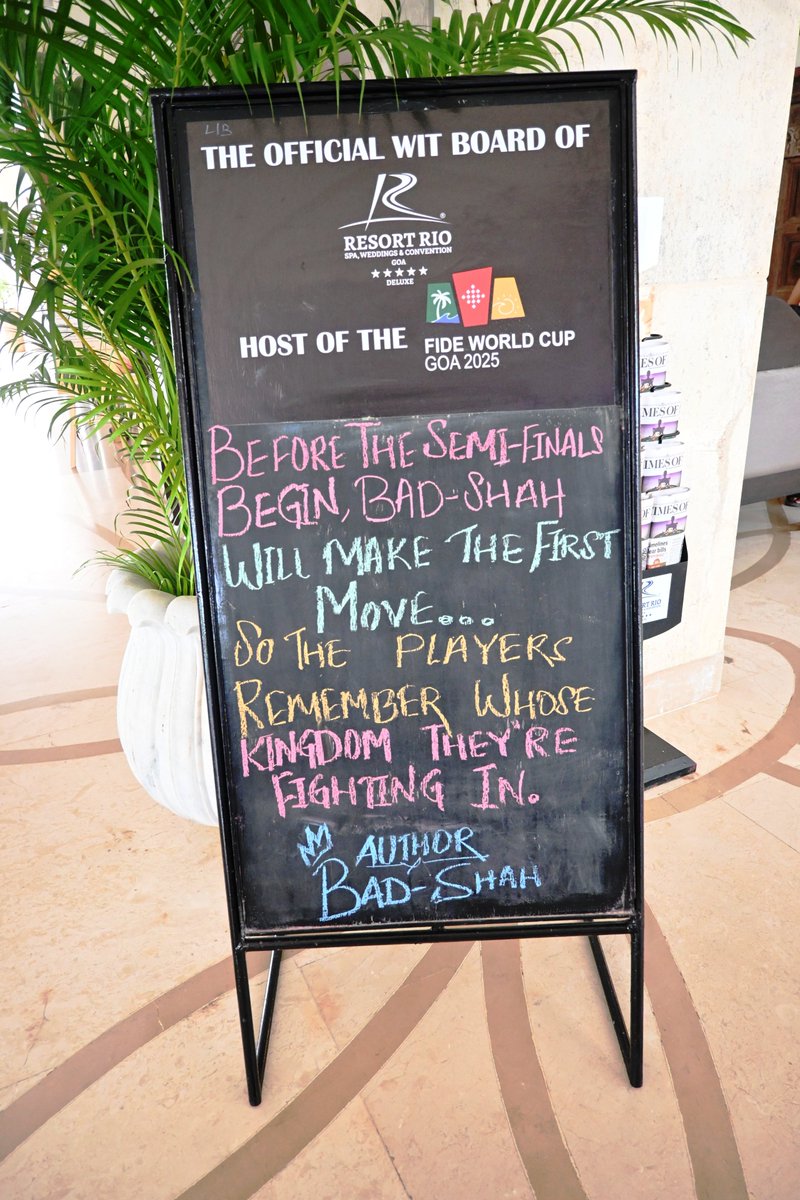 LIB
THE OFFICIAL WIT BOARD OF
R
®
RESORT RIO
SPA, WEDDINGS & CONVENTION
GOA
DELUXE
HOST OF THE
FIDE WORLD CUP
GOA 2025
BEFORE THE SEMI-FINALS
BEGIN, BAD-SHAH
WILL MAKE THE FIRST
MOVE...
SO THE PLAYERS
REMEMBER WHOSE
KINGDOM THEY'RE
FIGHTING IN.
AUTHOR
BAD-SHAH
MES OF
IMES OF
IMES OF
OF
ES OF
ORT RIO